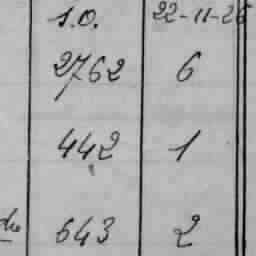 1.0. 22-11-26
2762 6
442 1
643 2